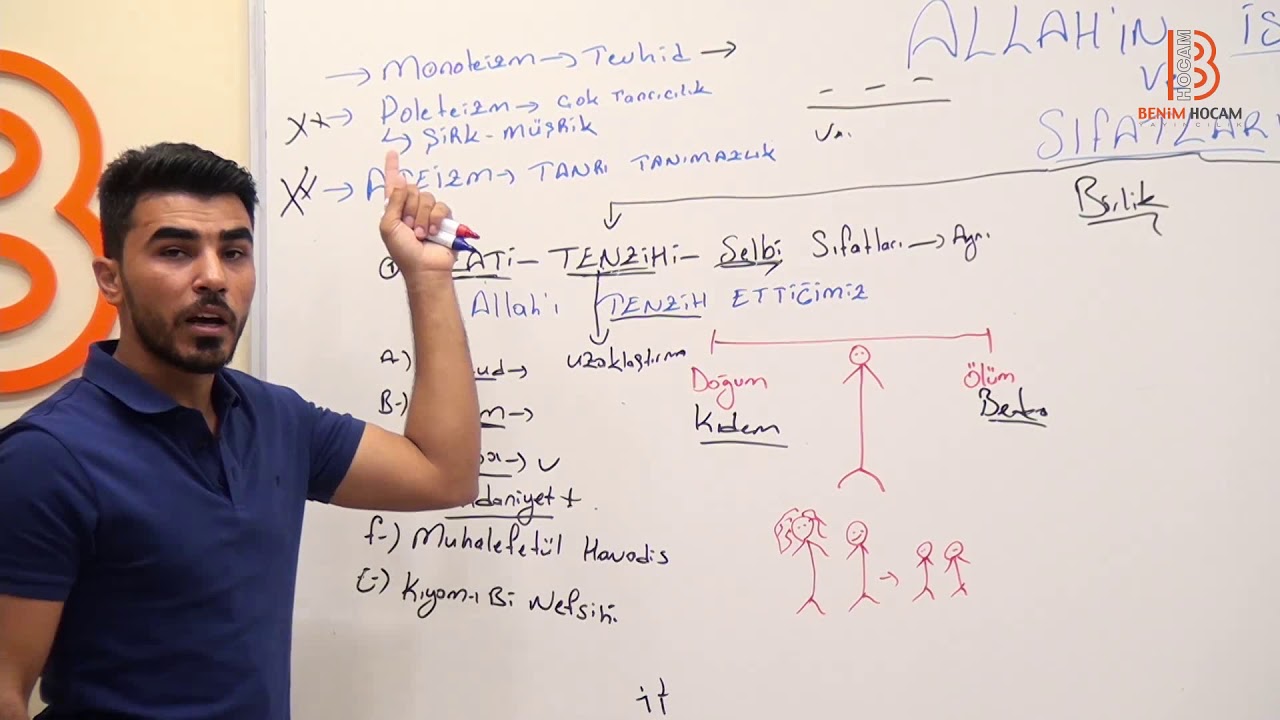 ALLAH'IN İS
Ve
SIFATLARI
BENİM HOCAM
YAYINCILIK
→ Monoteizm → Tevhid →
XX → Poleteizm → Çok Tanrıcılık
↳ Şirk - Müşrik
XX → ATEİZM → TANRI TANIMAZLIK
ATİ - TENZİHİ - Selbi Sıfatları → Ayrı
Allah'ı TENZİH ETTİĞİMİZ
uzaklaştırma
A) ud →
B-) m →
→ V
daniyet +
f-) Muhalefetül Havadis
Kıyam-ı Bi Nefsihi
Doğum Ölüm
Kıdem